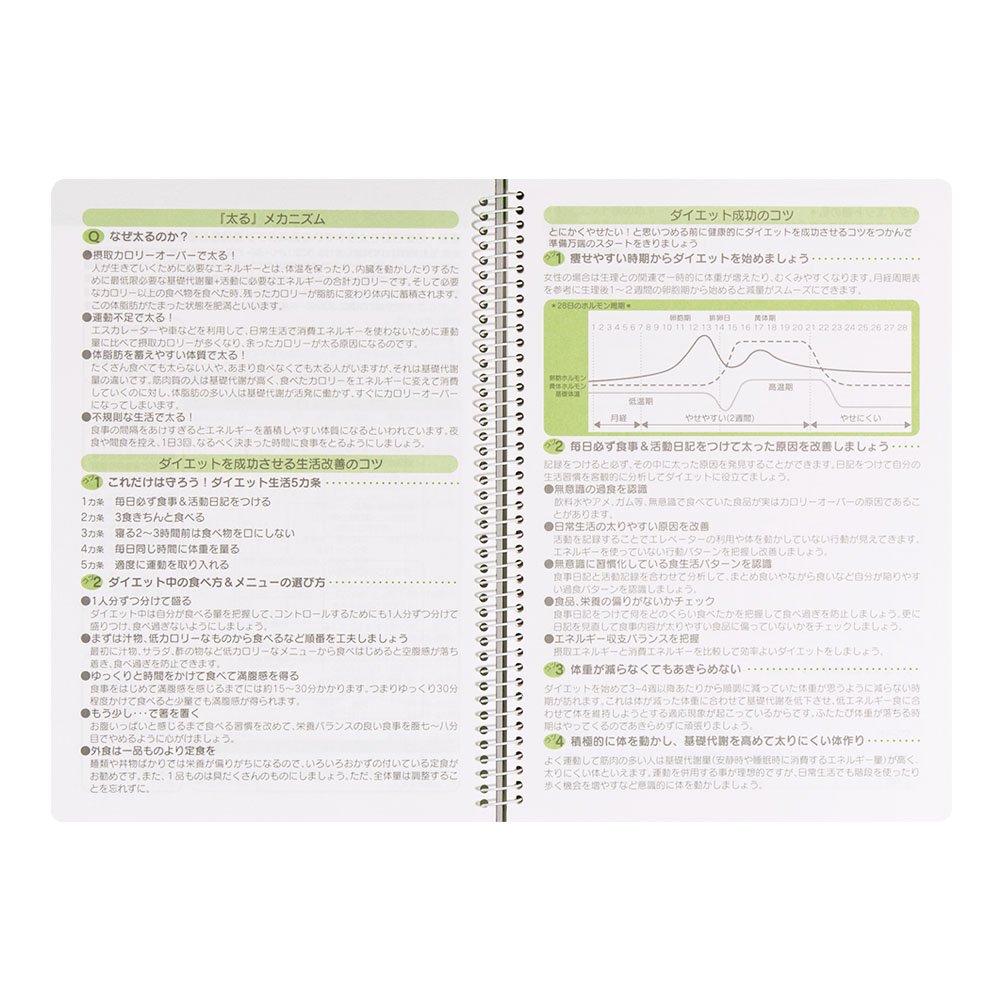 『太る』メカニズム
Q なぜ太るのか？
●摂取カロリーオーバーで太る！
人が生きていくために必要なエネルギーとは、体温を保ったり、内臓を動かしたりするた
めに最低限必要な基礎代謝量+活動に必要なエネルギーの合計カロリーです。そして必要
なカロリー以上の食べ物を食べた時、残ったカロリーが脂肪に変わり体内に蓄積されます。
この体脂肪がたまった状態を肥満といいます。
●運動不足で太る！
エスカレーターや車などを利用して、日常生活で消費エネルギーを使わないために運動
量に比べて摂取カロリーが多くなり、余ったカロリーが太る原因になるのです。
●体脂肪を蓄えやすい体質で太る！
たくさん食べても太らない人や、あまり食べなくても太る人がいますが、それは基礎代謝
量の違いです。筋肉質の人は基礎代謝が高く、食べたカロリーをエネルギーに変えて消費
していくのに対し、体脂肪の多い人は基礎代謝が活発に働かず、すぐにカロリーオーバー
になってしまいます。
●不規則な生活で太る！
食事の間隔をあけすぎるとエネルギーを蓄積しやすい体質になるといわれています。夜
食や間食を控え、1日3回、なるべく決まった時間に食事をとるようにしましょう。
ダイエットを成功させる生活改善のコツ
コツ1 これだけは守ろう！ダイエット生活5力条
1力条 毎日必ず食事＆活動日記をつける
2力条 3食きちんと食べる
3力条 寝る2〜3時間前は食べ物を口にしない
4力条 毎日同じ時間に体重を量る
5力条 適度に運動を取り入れる
コツ2 ダイエット中の食べ方＆メニューの選び方
●1人分ずつ分けて盛る
ダイエット中は自分が食べる量を把握して、コントロールするためにも1人分ずつ分けて
盛りつけ、食べ過ぎないようにしましょう。
●まずは汁物、低カロリーなものから食べるなど順番を工夫しましょう
最初に汁物、サラダ、酢の物など低カロリーなメニューから食べはじめると空腹感が落ち
着き、食べ過ぎを防止できます。
●ゆっくりと時間をかけて食べて満腹感を得る
食事をはじめて満腹感を感じるまでには約15〜30分かかります。つまりゆっくり30分
程度かけて食べると少量でも満腹感が得られます。
●もう少し…で箸を置く
お腹いっぱいと感じるまで食べる習慣を改めて、栄養バランスの良い食事を腹七〜八分
目でやめるように心がけましょう。
●外食は一品ものより定食を
麺類や丼物ばかりでは栄養が偏りがちになるので、いろいろおかずの付いている定食が
お勧めです。また、1品ものは具だくさんのものにしましょう。ただ、全体量は調整するこ
とを忘れずに。
ダイエット成功のコツ
とにかくやせたい！と思いつめる前に健康的にダイエットを成功させるコツをつかんで
準備万端のスタートをきりましょう
コツ1 痩せやすい時期からダイエットを始めましょう
女性の場合は生理との関連で一時的に体重が増えたり、むくみやすくなります。月経周期表
を参考に生理後1〜2週間の卵胞期から始めると減量がスムーズにできます。
＊28日のホルモン周期＊
卵胞期 排卵日 黄体期
1 2 3 4 5 6 7 8 9 10 11 12 13 14 15 16 17 18 19 20 21 22 23 24 25 26 27 28
卵胞ホルモン
黄体ホルモン
基礎体温
高温期
低温期
月経 やせやすい(2週間) やせにくい
コツ2 毎日必ず食事＆活動日記をつけて太った原因を改善しましょう
記録をつけると必ず、その中に太った原因を発見することができます。日記をつけて自分の
生活習慣を客観的に分析してダイエットに役立てましょう。
●無意識の過食を認識
飲料水やアメ、ガム等、無意識で食べていた食品が実はカロリーオーバーの原因であるこ
とがあります。
●日常生活の太りやすい原因を改善
活動を記録することでエレベーターの利用や体を動かしていない行動が見えてきます。
エネルギーを使っていない行動パターンを把握し改善しましょう。
●無意識に習慣化している食生活パターンを認識
食事日記と活動記録を合わせて分析して、まとめ食いやながら食いなど自分が陥りやす
い過食パターンを認識しましょう。
●食品、栄養の偏りがないかチェック
食事日記をつけて何をどのくらい食べたかを把握して食べ過ぎを防止しましょう。更に
日記を見直して食事内容が太りやすい食品に偏っていないかをチェックしましょう。
●エネルギー収支バランスを把握
摂取エネルギーと消費エネルギーを比較して効率よいダイエットをしましょう。
コツ3 体重が減らなくてもあきらめない
ダイエットを始めて3〜4週以降あたりから順調に減っていた体重が思うように減らない時
期が訪れます。これは体が減った体重に合わせて基礎代謝を低下させ、低エネルギー食に合
わせて体を維持しようとする適応現象が起こっているからです。ふたたび体重が落ちる時
期はやってくるのであきらめずに頑張りましょう。
コツ4 積極的に体を動かし、基礎代謝を高めて太りにくい体作り
よく運動して筋肉の多い人は基礎代謝量(安静時や睡眠時に消費するエネルギー量)が高く、
太りにくい体といえます。運動を併用する事が理想的ですが、日常生活でも階段を使ったり
歩く機会を増やすなど意識的に体を動かしましょう。